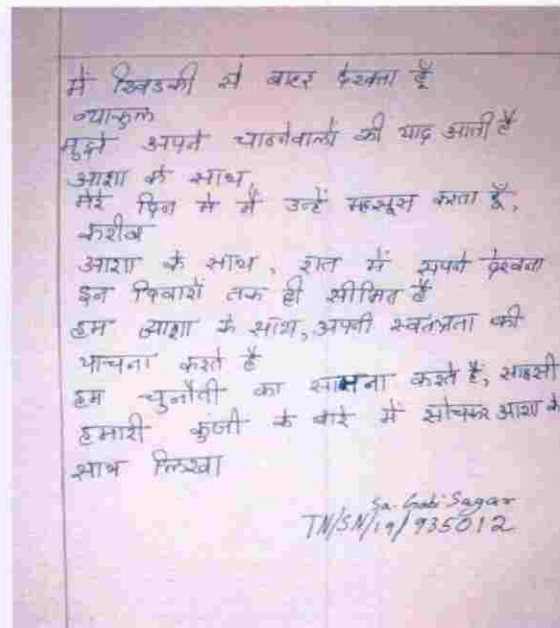 में खिडकी से बाहर देखता हूँ
व्याकुल
मुझे अपने चाहनेवालों की याद आती है
आशा के साथ,
मेरे दिन मे मैं उन्हें महसूस करता हूँ,
करीब
आशा के साथ, रात में सपने देखना
इन दिवारों तक ही सीमित है
हम आशा के साथ, अपनी स्वतंत्रता की
याचना करते है
हम चुनौती का सामना करते हैं, साहसी
हमारी कुंजी के बारे में सोचकर आशा के
साथ लिखा
Sagar
TN/SN/19/935012